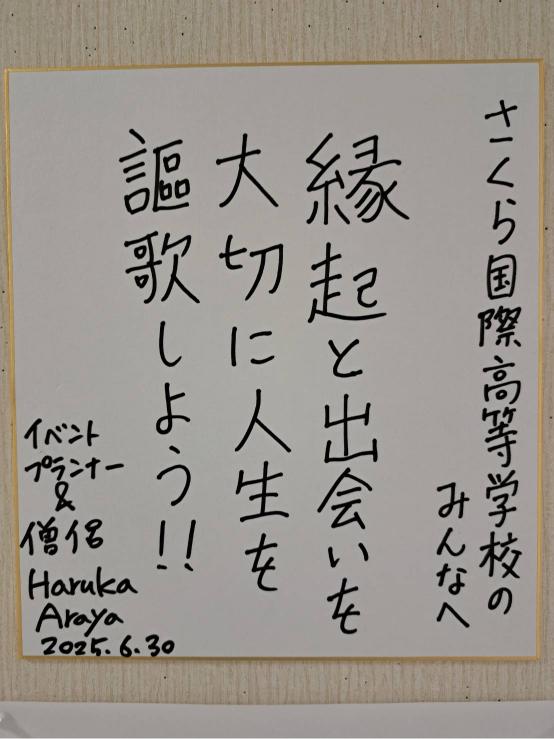 さくら国際高等学校の
みんなへ
縁起と出会いを
大切に人生を
謳歌しよう!!
イベント
プランナー
&
僧侶
Haruka
Araya
2025.6.30